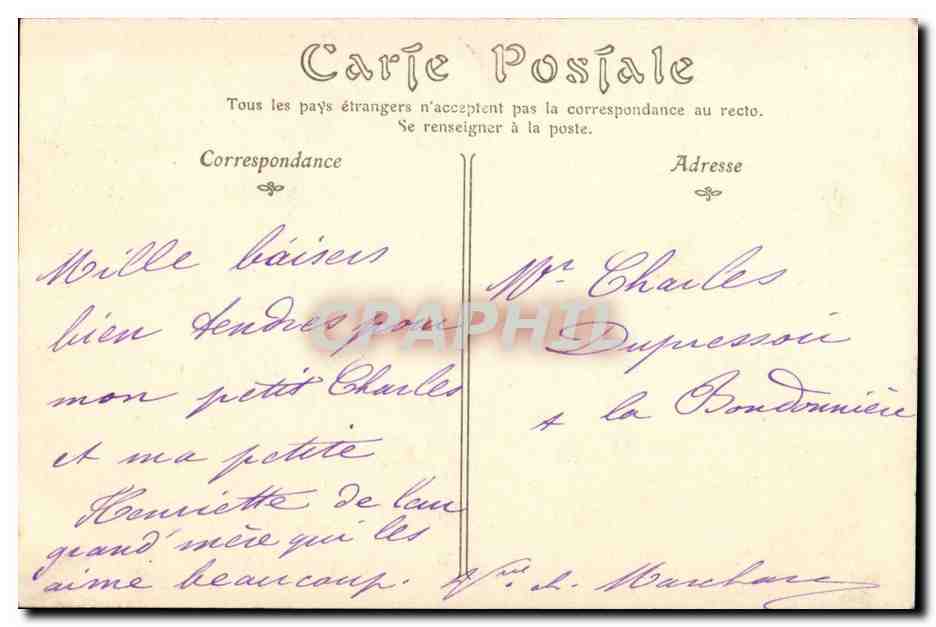 Carte Postale
Tous les pays étrangers n'acceptent pas la correspondance au recto.
Se renseigner à la poste.
Correspondance
Adresse
Mille baisers
bien tendres pour
mon petit Charles
et ma petite
Henriette de leur
grand'mère qui les
aime beaucoup.
Mr. Charles
Dupressoir
à la Bondonnière
Vve
CPAPHIL